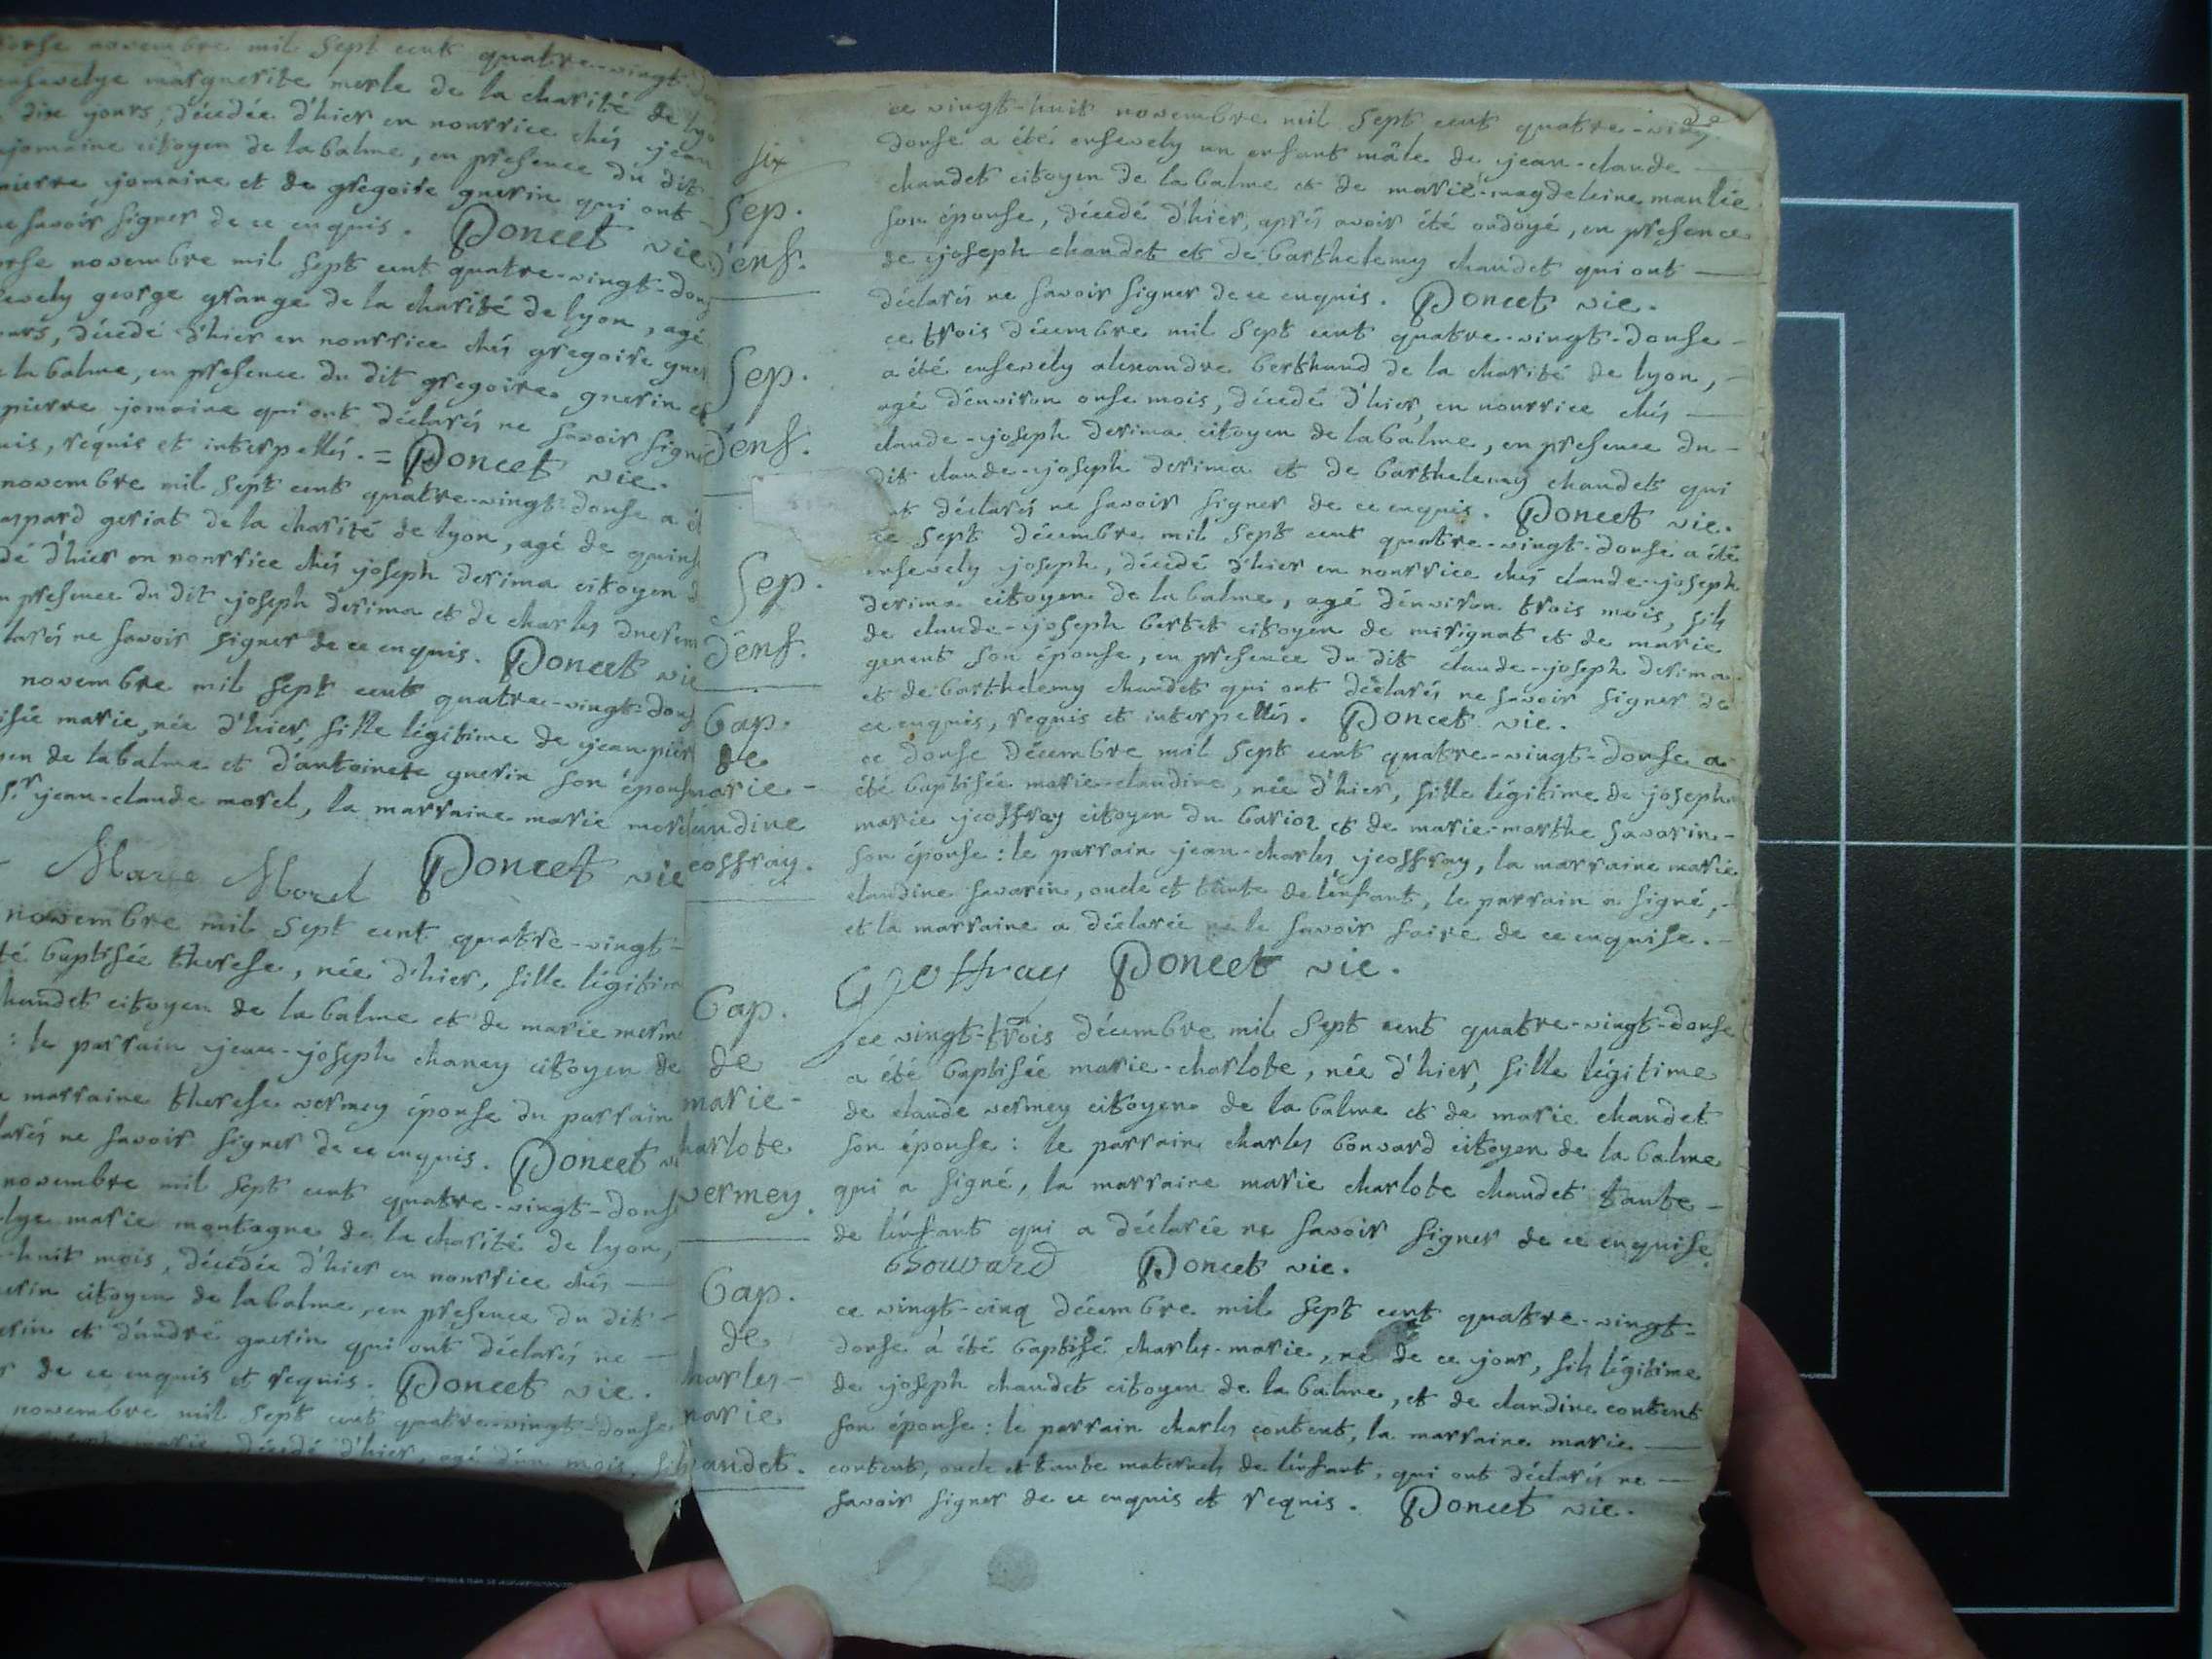 novembre mil sept cent quatre-vingt
ensevelye marguerite merle de la charité de lyo
dixe jours, décédée d'hier en nourrice chés jean
jomaine citoyen de la balme, en presence du dit
pierre jomaine et de gregoire guerin qui ont
ne savoir signer de ce enquis. Poncet vic
novembre mil sept cent quatre-vingt-dou
evely george grange de la charité de lyon, agé
ours, décédé d'hier en nourrice chés gregoire guer
la balme, en presence du dit gregoire guerin et
pierre jomaine qui ont déclarés ne savoir signe
uis, réquis et interpellés. = Poncet vic.
novembre mil sept cent quatre-vingt-douse a é
aspard geriat de la charité de lyon, agé de quins
dé d'hier en nourrice chés joseph derima citoyen d
n presence du dit joseph derima et de charles
larés ne savoir signer de ce enquis. Poncet vic
novembre mil sept cent quatre-vingt-dous
isée marie, née d'hier, fille légitime de jean pier
en de la balme et d'antoinete guerin son épous
s.r jean-claude morel, la marraine marie more
Marie Morel Poncet vic
novembre mil sept cent quatre-vingt-
té baptisée therese, née d'hier, fille légitim
haudet citoyen de la balme et de marie merm
: le parrain jean-joseph chaney citoyen de
marraine therese vermey épouse du parrain
larés ne savoir signer de ce enquis. Poncet vi
novembre mil sept cent quatre-vingt-dous
lye marie montagne de la charité de lyon,
-huit mois, décédée d'hier en nourrice chés
erin citoyen de la balme, en presence du dit
erin et d'andré guerin qui ont déclarés ne
r de ce enquis et requis. Poncet vic.
novembre mil sept cent quatre-vingt-douse
marie, décédé d'hier, agé d'un mois, fils
six
sep.
d'enf.
ce vingt-huit novembre mil sept cent quatre-ving
douse a été ensevely un enfant mâle de jean-claude
chaudet citoyen de la balme et de marie-magdeleine manlie
son épouse, décédé d'hier, aprés avoir été ondoyé, en presence
de joseph chaudet et de barthelemy chaudet qui ont
déclarés ne savoir signer de ce enquis. Poncet vic.
sep.
d'enf.
ce trois décembre mil sept cent quatre-vingt-douse
a été ensevely alexandre berthaud de la charité de lyon,
agé d'environ onse mois, décédé d'hier, en nourrice chés
claude-joseph derima citoyen de la balme, en presence du
dit claude-joseph derima et de barthelemy chaudet qui
nt déclarés ne savoir signer de ce enquis. Poncet vic.
sep.
d'enf.
ce sept décembre mil sept cent quatre-vingt-douse a été
ensevely joseph, décédé d'hier en nourrice chés claude-joseph
derima citoyen de la balme, agé d'environ trois mois, fils
de claude-joseph bertet citoyen de mirignat et de marie
genent son épouse, en presence du dit claude-joseph derima
et de barthelemy chaudet qui ont déclarés ne savoir signer de
ce enquis, requis et interpellés. Poncet vic.
bap.
de
marie-
laudine
eoffray.
ce douse décembre mil sept cent quatre-vingt-douse a
été baptisée marie-claudine, née d'hier, fille légitime de joseph
marie jeoffray citoyen du barioz et de marie-marthe savarin
son épouse : le parrain jean-charles jeoffray, la marraine marie
claudine savarin, oncle et tante de l'enfant, le parrain a signé,
et la marraine a déclarée ne le savoir faire de ce enquise.
Gjeoffray Poncet vic.
bap.
de
marie-
harlote
vermey.
ce vingt-trois décembre mil sept cent quatre-vingt-douse
a été baptisée marie-charlote, née d'hier, fille légitime
de claude vermey citoyen de la balme et de marie chaudet
son épouse : le parrain charles bouvard citoyen de la balme
qui a signé, la marraine marie charlote chaudet tante
de l'enfant qui a déclarée ne savoir signer de ce enquise
Bouvard Poncet vic.
bap.
de
harles-
marie
audet.
ce vingt-cinq décembre mil sept cent quatre-vingt-
douse a été baptisé charles-marie, né de ce jour, fils légitime
de joseph chaudet citoyen de la balme, et de claudine content
son épouse : le parrain charles content, la marraine marie
content, oncle et tante maternels de l'enfant, qui ont déclarés ne
savoir signer de ce enquis et requis. Poncet vic.